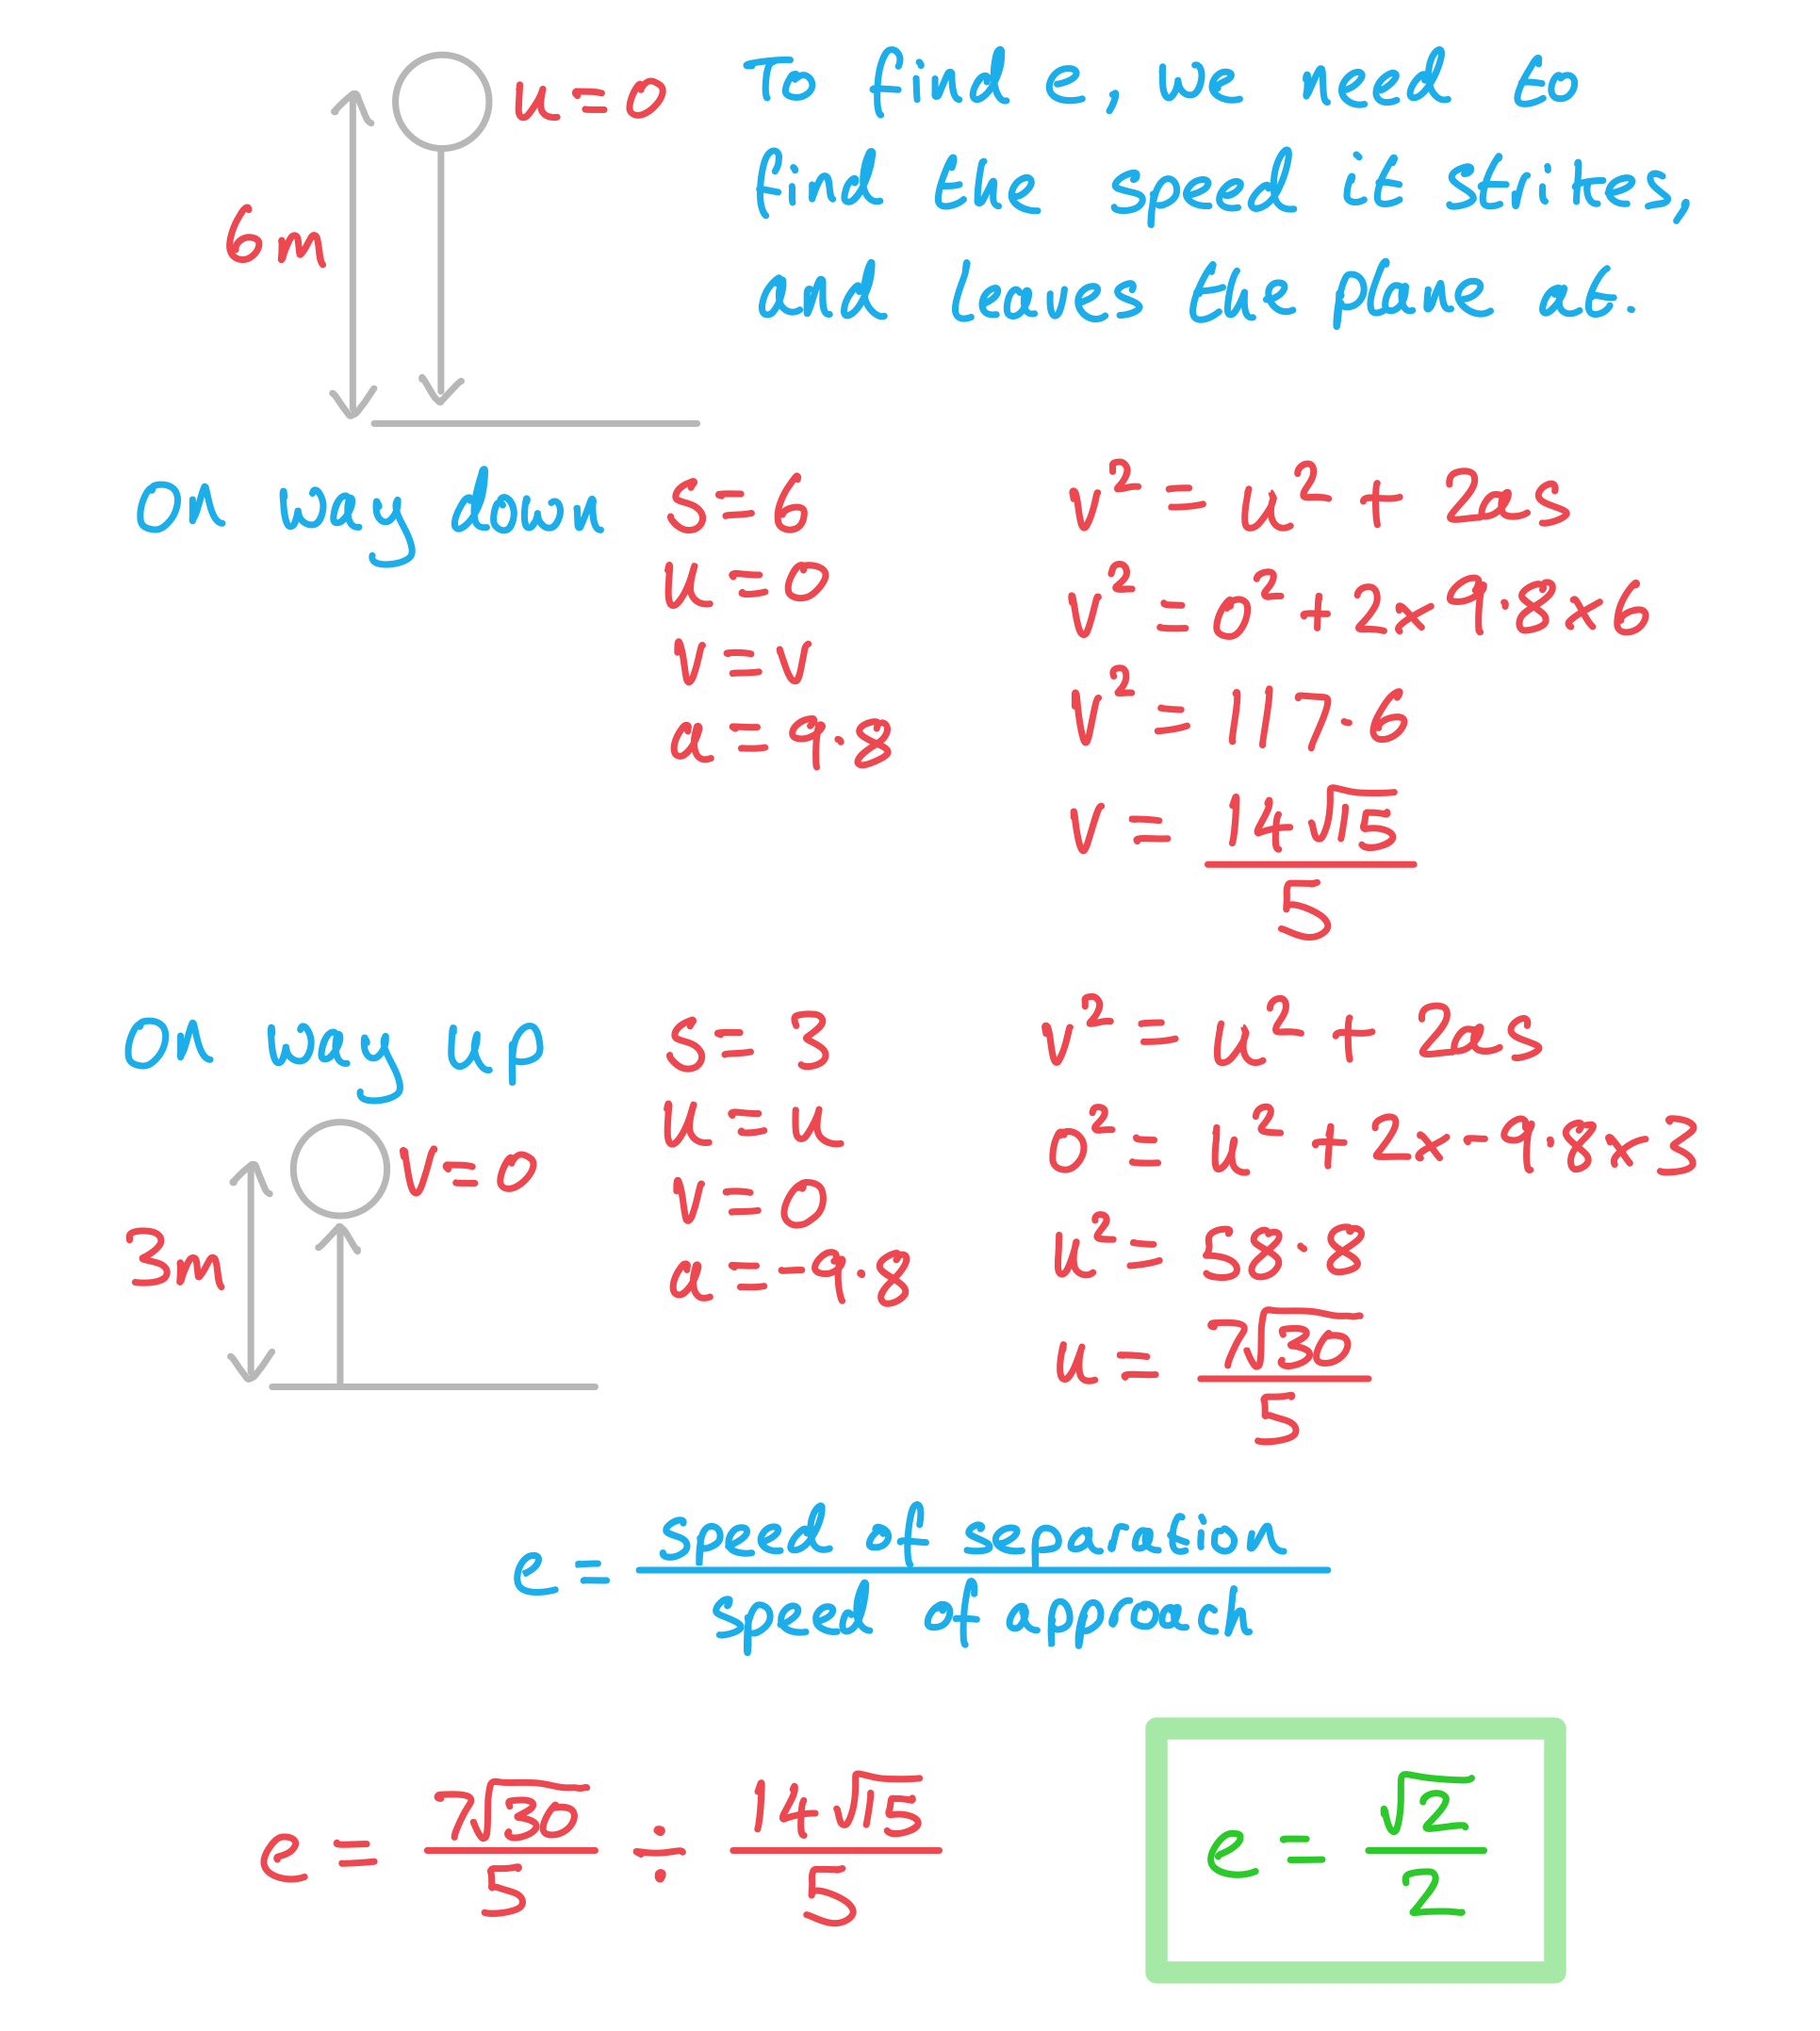 u = 0
To find e, we need to
find the speed it strikes,
and leaves the plane at.
6m
On way down
s = 6
u = 0
v = v
a = 9.8
v² = u² + 2as
v² = 0² + 2×9.8×6
v² = 117.6
v = 14√15/5
On way up
v = 0
3m
s = 3
u = u
v = 0
a = -9.8
v² = u² + 2as
0² = u² + 2×-9.8×3
u² = 58.8
u = 7√30/5
e = speed of separation/speed of approach
e = 7√30/5 ÷ 14√15/5
e = √2/2